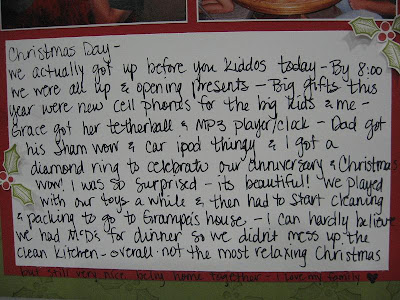 Christmas Day -
we actually got up before you kiddos today - By 8:00
we were all up & opening presents - Big gifts this
year were new cell phones for the big kids & me -
Grace got her tetherball & MP3 player/clock - Dad got
his sham wow & car ipod thingy & I got a
diamond ring to celebrate our anniversary & Christmas
wow! I was so surprised - its beautiful! We played
with our toys a while & then had to start cleaning
& packing to go to Grampa's house, - I can hardly believe
we had McDs for dinner so we didn't mess up the
clean kitchen - overall not the most relaxing Christmas
but still very nice being home together - I love my family ♥